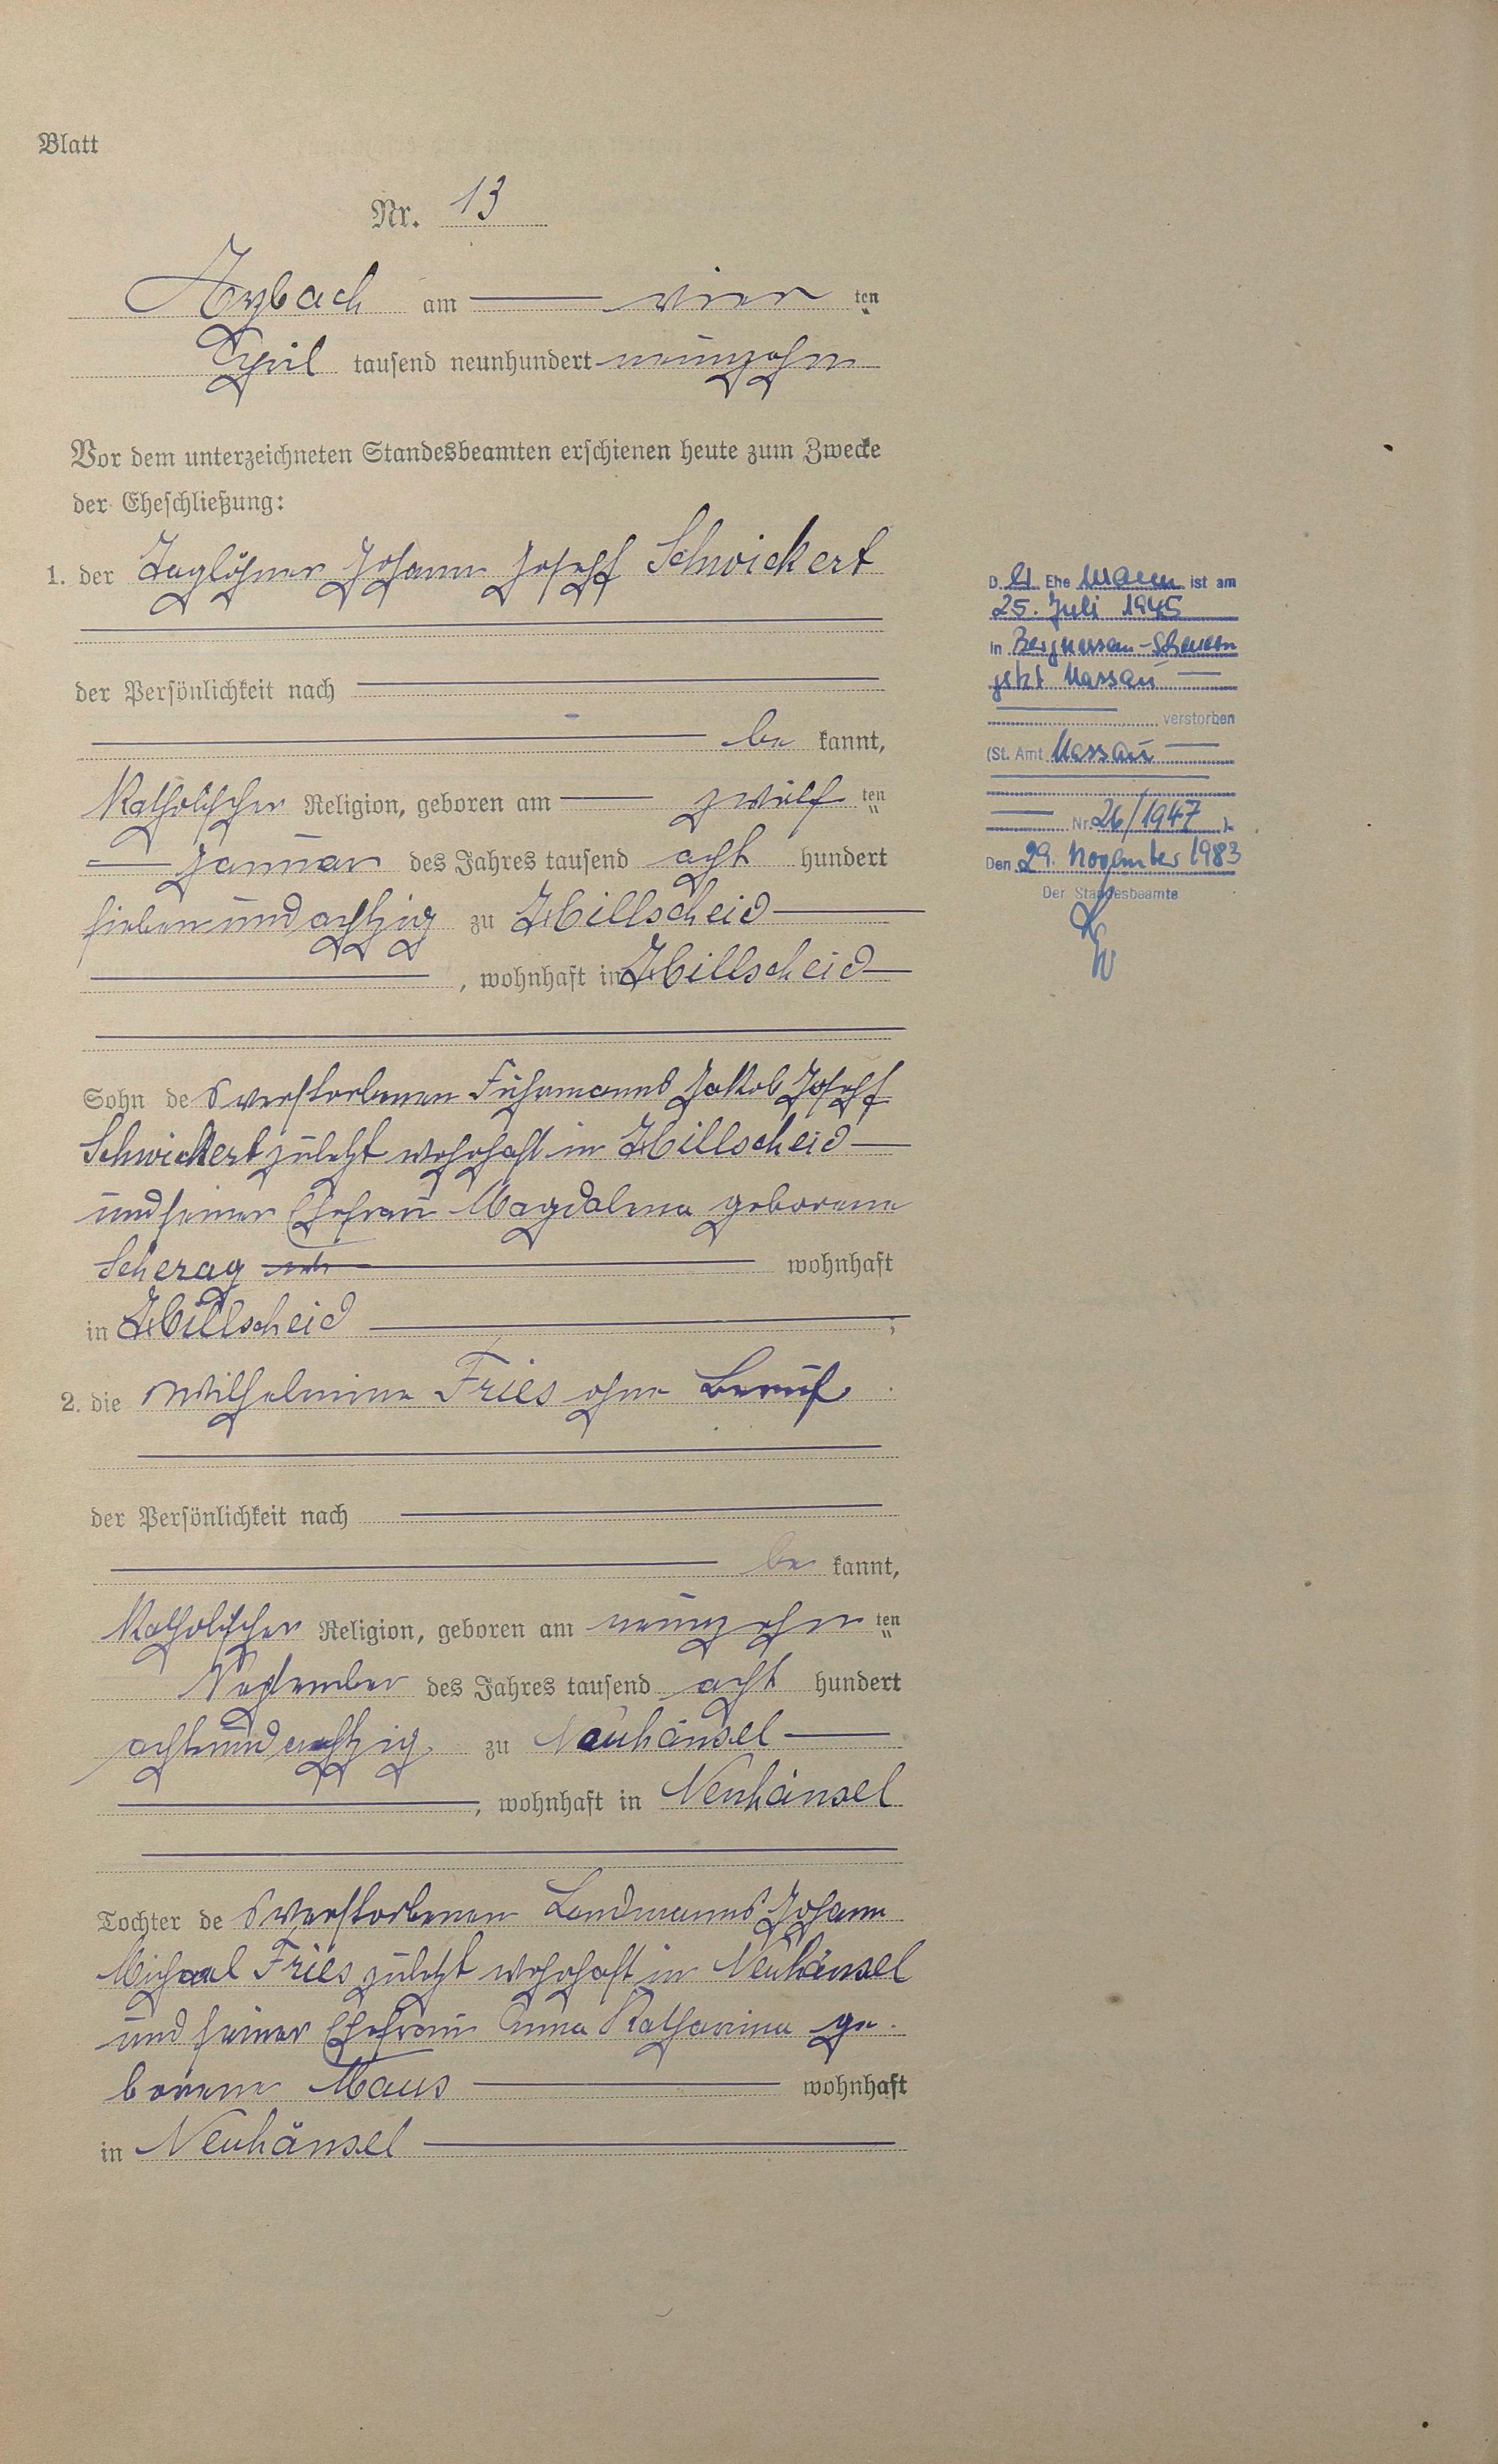 Blatt
Nr. 13
Arzbach am vier ten
April tausend neunhundert neunzehn
Vor dem unterzeichneten Standesbeamten erschienen heute zum Zwecke
der Eheschließung:
1. der Taglöhner Johann Joseph Schwickert
der Persönlichkeit nach
be kannt,
Katholischer Religion, geboren am zwölf ten
Januar des Jahres tausend acht hundert
siebenundachtzig zu Hillscheid
, wohnhaft in Hillscheid
Sohn des verstorbenen Fuhrmanns Jakob Joseph
Schwickert zuletzt wohnhaft in Hillscheid
und seiner Ehefrau Magdalena geborene
Scherag wohnhaft
in Hillscheid ;
2. die Wilhelmine Fries ohne Beruf
der Persönlichkeit nach
be kannt,
Katholischer Religion, geboren am neunzehn ten
September des Jahres tausend acht hundert
achtundachtzig zu Neuhäusel
, wohnhaft in Neuhäusel
Tochter des verstorbenen Landmanns Johann
Michael Fries zuletzt wohnhaft in Neuhäusel
und seiner Ehefrau Anna Katharina ge-
borene Maus wohnhaft
in Neuhäusel
D. er Ehe mann ist am
25. Juli 1945
in Bergnassau-Scheuern
jetzt Nassau
verstorben
(St. Amt Nassau
Nr. 26/1947 ).
Den 29. November 1983
Der Standesbeamte